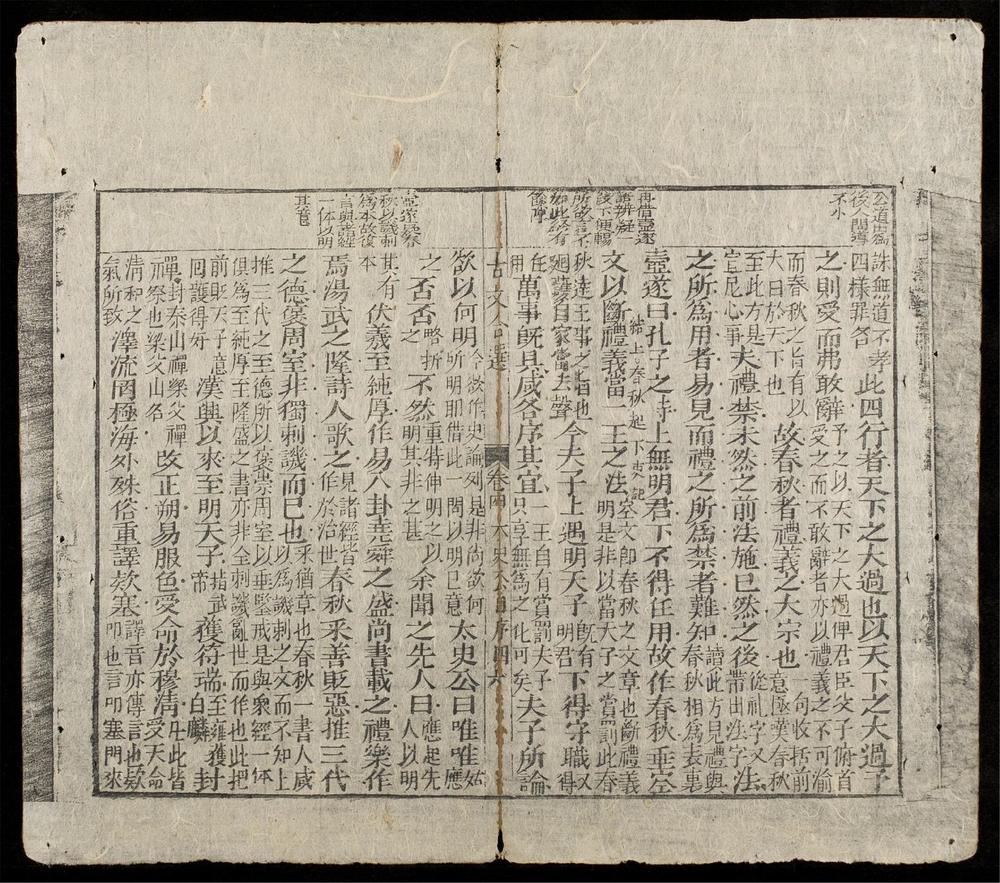 公道出爲
後人開導
不小
再借壺遂
語辨疑一
段下便暢
所欲言不
如此猶有
餘陣
壺遂疑春
秋以譏刺
爲本故復
言與諸經
一体以明
其旨
誅無道不孝四様罪名此四行者天下之大過也以天下之大過予
之則受而弗敢辭予之以天下之大過俾君臣父子俯首受之而不敢辭者亦以禮義之不可渝
而春秋之旨有以大白於天下也故春秋者禮義之大宗也一句收括前意極莢春秋
至此方是宣尼心事夫禮禁未然之前法施已然之後從礼字又帶出法字法
之所爲用者易見而禮之所爲禁者難知讀此方見禮與春秋相爲表裏
壺遂曰孔子之時上無明君下不得任用故作春秋垂空
結上春秋起下史記
文以斷禮義當一王之法空文即春秋之文章也斷禮義明是非以當天子之賞罰此春
秋達王事之旨也廻護自家當去聲今夫子上遇明天子既有明君下得守職又得
任用萬事既具咸各序其宜一王自有賞罰夫子只享無爲之化可矣夫子所論
古文合選 卷四 太史公自序四 六
欲以何明今欲作史論列是非尚欲何所明耶借此一問以明已意太史公曰唯唯姑應
之否否略折之不然重特伸明之以明其非之甚余聞之先人曰應起先人以明
其有本伏羲至純厚作易八卦堯舜之盛尚書載之禮樂作
焉湯武之隆詩人歌之見諸經皆作於治世春秋采善貶惡推三代
之德褒周室非獨刺譏而已也采猶章也春秋一書人咸以爲譏刺之文而不知上
推三代之至德所以褒崇周室以垂鑒戒是與衆經一体俱爲至純厚至隆盛之書亦非全刺譏亂世而作也此把
前貶天子意回護得好漢興以來至明天子指武帝獲符瑞至雍獲白麟封
禪封泰山禪梁父禪祭也梁父山名改正朔易服色受命於穆清受天命凡此皆
清和之氣所致澤流罔極海外殊俗重譯欵塞譯音亦傳言也欵叩也言叩塞門來